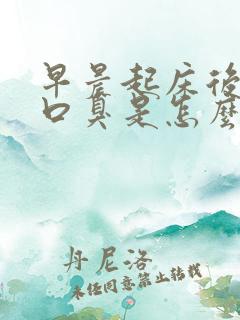 早晨起床後
口臭是怎麼
丹尼洛
未经同意禁止转载